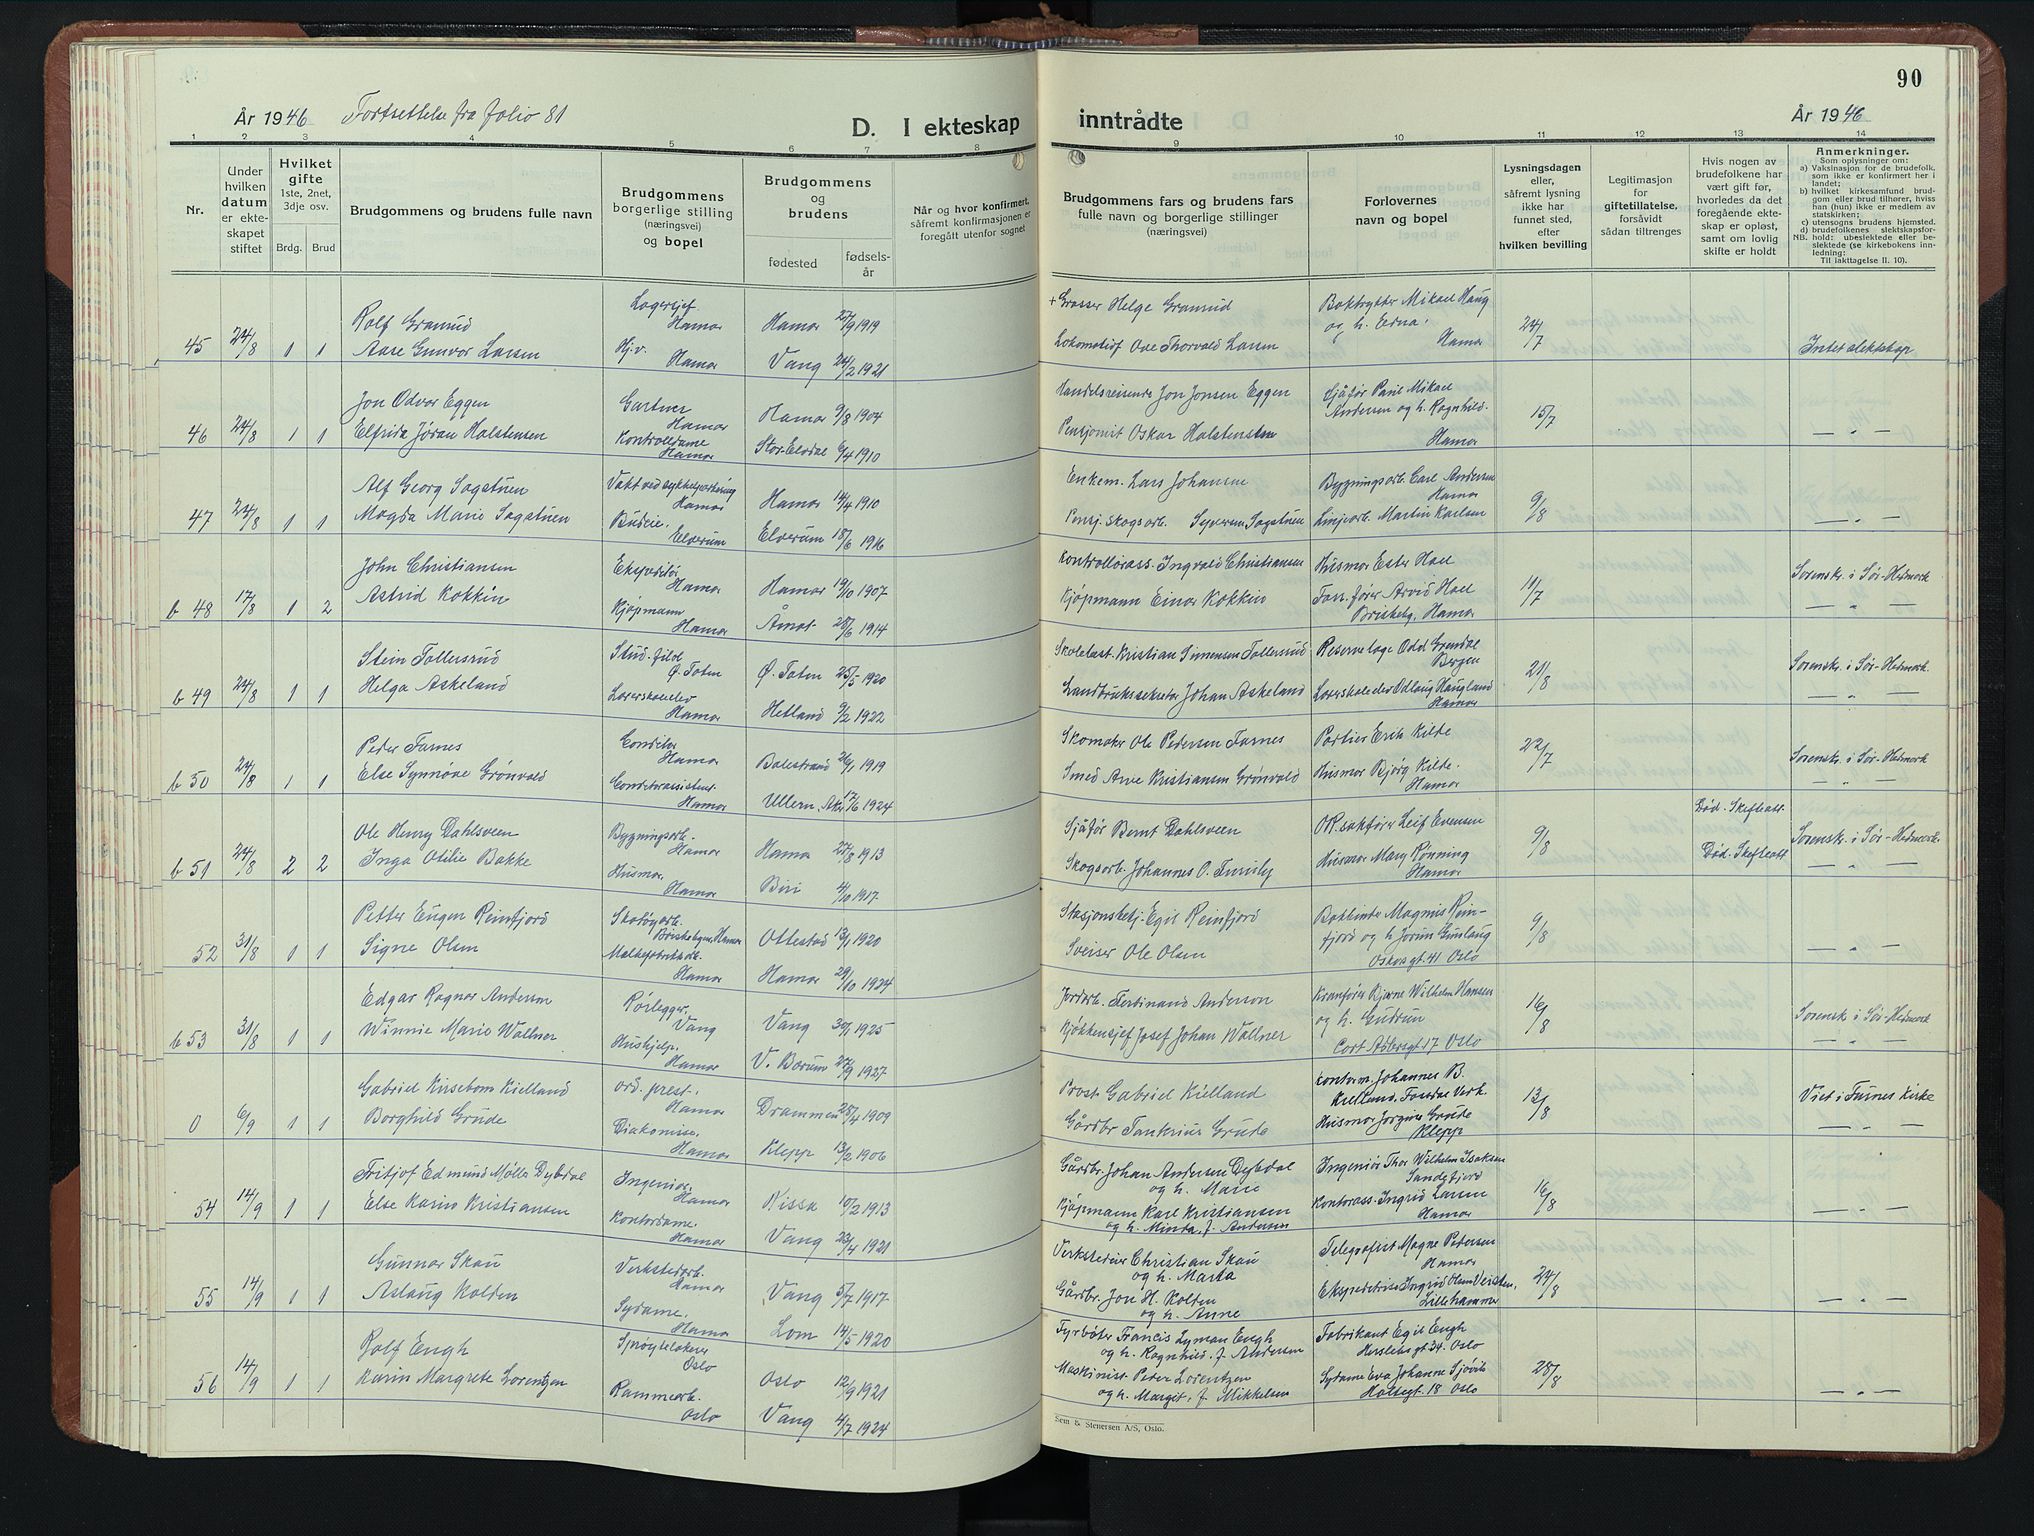 År 1946 Fortsettelse fra folio 81
D. I ekteskap
1 2 3 4 5 6 7 8
Nr.
Under hvilken datum er ekte-skapet stiftet
Hvilket gifte
1ste, 2net, 3dje osv.
Brdg. Brud
Brudgommens og brudens fulle navn
Brudgommens borgerlige stilling (næringsvei) og bopel
Brudgommens og brudens
fødested
fødsels-år
Når og hvor konfirmert, såfremt konfirmasjonen er foregått utenfor sognet
45 24/8 1 1
Rolf Granrud Lagersjef Hamar Hamar 27/9 1919
Aase Gunvor Larsen Hj.v. Hamar Vang 24/2 1921
46 24/8 1 1
Jon Odvar Eggen Gartner Hamar Hamar 9/8 1904
Elfrida Jøran Halstensen Kontrolldame Hamar Stor-Elvdal 6/4 1910
47 24/8 1 1
Alf Georg Sagstuen Hamar Hamar 14/4 1910
Magda Marie Sagstuen Budeie. Elverum Elverum 18/6 1916
b 48 17/8 1 2
John Christiansen Ekspeditør Hamar Hamar 19/10 1907
Astrid Kokkin Kjøpmann Hamar Åmot 28/6 1914
b 49 24/8 1 1
Stein Tollersrud Stud. filol Ø. Toten Ø. Toten 25/5 1920
Helga Askeland Hamar Hetland 9/2 1922
b 50 24/8 1 1
Peder Farnes Conditor Hamar Balestrand 26/1 1919
Else Synnøve Grønvold Conditorassistent. Hamar Ullern, Aker 17/6 1924
b 51 24/8 2 2
Ole Henry Dahlsveen Bygningsarb. Hamar Hamar 27/8 1913
Inga Otilie Bakke Husmor Hamar Biri 4/10 1917
52 31/8 1 1
Petter Eugen Reinfjord Skotøyarb. Hamar Ottestad 13/1 1920
Signe Olsen Hamar Hamar 29/10 1924
b 53 31/8 1 1
Edgar Ragnar Andersen Rørlegger, Vang Vang 1925
Winnie Marie Wallner Hushjelp. Hamar V. Bærum 27/9 1927
0 6/9 1 1
Gabriel Kirsebom Kielland ord. prest. Hamar Drammen 28/4 1909
Borghild Grude Diakonisse, Hamar Klepp 13/2 1906
54 14/9 1 1
Fritjof Edmund Møller Dybdal Ingeniør Hamar Rissa 10/2 1913
Else Karine Kristiansen Kontordame. Hamar Vang 23/4 1921
55 14/9 1 1
Gunnar Skau Verkstedarb. Hamar Vang 5/7 1917
Aslaug Kolden Sydame. Hamar Lom 14/5 1920
56 14/9 1 1
Rolf Engh Sprøytelakerer Oslo Oslo 12/9 1921
Karin Margrete Lorentzen Rammearb. Oslo Vang 4/7 1924
90
inntrådte År 1946
9 10 11 12 13 14
Brudgommens fars og brudens fars fulle navn og borgerlige stillinger (næringsvei)
Forlovernes navn og bopel
Lysningsdagen eller, såfremt lysning ikke har funnet sted, efter hvilken bevilling
Legitimasjon for giftetillatelse, forsåvidt sådan tiltrenges
Hvis nogen av brudefolkene har vært gift før, hvorledes da det foregående ekte-skap er opløst, samt om lovlig skifte er holdt
Anmerkninger.
Som oplysninger om:
a) Vaksinasjon for de brudefolk, som ikke er konfirmert her i landet;
b) hvilket kirkesamfund brud-gom eller brud tilhører, hvis han (hun) ikke er medlem av statskirken;
c) utensogns brudens hjemsted.
d) brudefolkenes slektskapsfor-hold: ubeslektede eller be-slektede (se kirkebokens inn-ledning;
NB. Til iakttagelse ll. 10).
+ Grosser Helge Granrud Boktrykker Mikael Haug og h. Edna. Hamar 24/7
Lokomotivf Ove Thorvald Larsen Intet slektskap
Handelsreisende Jon Jonsen Eggen Sjåfør Paul Mikael Andersen og h. Ragnhild. Hamar 15/7
Pensjonist Oskar Halstensen — " —
Enkem. Lars Johansen Bygningsarb. Carl Andersen Hamar 9/8
Pensj. skogsarb. Syversen Sagstuen Linjearb. Martin Karlsen — " —
Kontrollørass. Ingvald Christiansen Husmor Ester Hoel 11/7 Sorenskr. i Sør-Hedmark
Kjøpmann Einar Kokkin Arvid Hoel Briskeby, Hamar — " —
Kristian Simensen Tollersrud Reservelæge Odd Grendal Bergen 21/8 Sorenskr. i Sør-Hedmark.
Landbrukssekretær Johan Askeland Odlaug Haugland Hamar — " —
Skomaker Ole Pedersen Farnes Portier Erik Kilde 22/7 Sorenskr. i Sør-Hedmark
Smed Arne Kristiansen Grønvold Husmor Bjørg Kilde. Hamar — " —
Sjåfør Bernt Dahlsveen Leif Evensen 9/8 Død. Skifteatt. Sorenskr. i Sør-Hedmark.
Skogsarb. Johannes O. Husmor Mary Rønning Hamar Død. Skifteatt — " —
Stasjonsbetj. Egil Reinfjord Bokbinder Magnus Rein-fjord og h Jorun Gunlaug 9/8
Sveiser Ole Olsen 41 Oslo — " —
Jordarb. Ferdinand Andersen Kranfører Bjarne Wilhelm Hansen og h. Gudrun 16/8 Sorensk i Sør-Hedmark
Kjøkkensjef Josef Johan Wallner Cort Adelersgt 17 Oslo — " —
Prost Gabriel Kielland Kontorm. Johannes B. Kielland, Verk. 13/8 Viet i Furnes kirke
Gårdbr Tankrius Grude Husmor Jorgine Grude Klepp — " —
Gårdbr. Johan Andersen Dybdal og h. Marie Ingeniør Thor Wilhelm Isaksen Sandefjord 16/8
Kjøpmann Karl Kristiansen og h. Minda, f. Andersen Kontorass. Ingrid Larsen Hamar — " —
Verksteder Christian Skau og h. Marta Telegrafist Magne Pedersen Hamar 24/8
Gårdbr. Jon H. Kolden og h. Anne Ekspeditrise Ingrid Olsen Veisten, Lillehammer — " —
Fyrbøter Francis Lyman Engh og h. Ragnhild. f. Andersen Fabrikant Egil Engh Herslebsgt 34. Oslo 28/8
Maskinist Peder Lorentzen og h. Margit, f. Mikkelsen Sydame Eva Johanne Sjøvik Holtegt. 18 Oslo — " —
Sem & Stenersen A/S, Oslo.